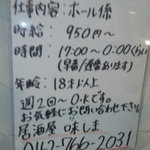 仕事内容:ホール係
時給: 950円〜
時間: 17:00〜0:00(らい)
(早番/遅番あります)
年齢: 18才以上
週2回〜OKです。
お気軽にお問い合わせ下さい。
居酒屋 味しま
042-766-2031